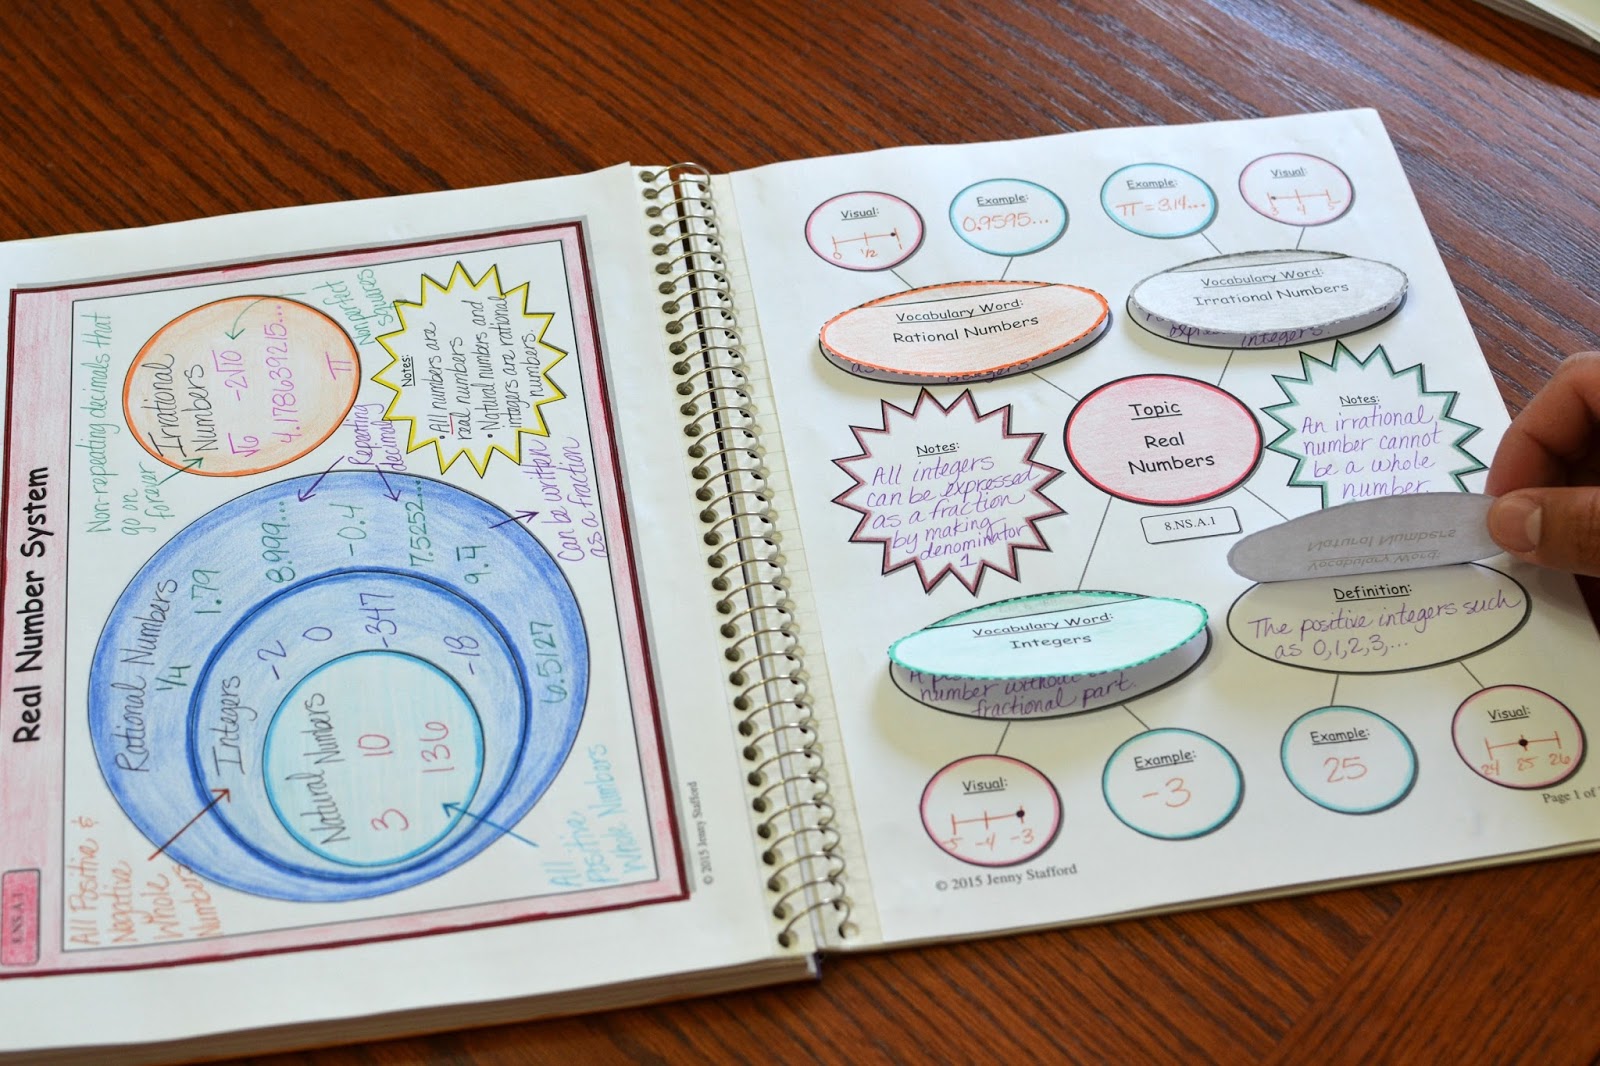 Real Number System
8.NS.A.1
Non-repeating decimals that
go on
forever
Irrational
Numbers
√6 -2√10
4.178639215...
π
Nonperfect
squares
Notes:
• All numbers are
real numbers
• Natural numbers and
integers are rational
numbers.
Repeating
decimals
Can be written
as a fraction
Rational Numbers
1/4
1.79
8.999...
-0.4
7.5252...
9.4
6.5127
Integers
-2
0
-347
-18
Natural Numbers
3 10
136
All Positive &
Negative
Whole
Numbers
All
Positive
Whole Numbers
© 2015 Jenny Stafford
Visual:
0 1/2 1
Example:
0.9595...
Example:
π = 3.14...
Visual:
3 4
Vocabulary Word:
Rational Numbers
as
integers
Vocabulary Word:
Irrational Numbers
integers.
Notes:
All integers
can be expressed
as a fraction
by making
denominator
1
Topic
Real
Numbers
8.NS.A.1
Notes:
An irrational
number cannot
be a whole
number
Vocabulary Word:
Natural Numbers
Definition:
The positive integers such
as 0,1,2,3,...
Vocabulary Word:
Integers
number without
fractional part.
Visual:
-5 -4 -3
Example:
-3
Example:
25
Visual:
24 25 26
Page 1 of
© 2015 Jenny Stafford